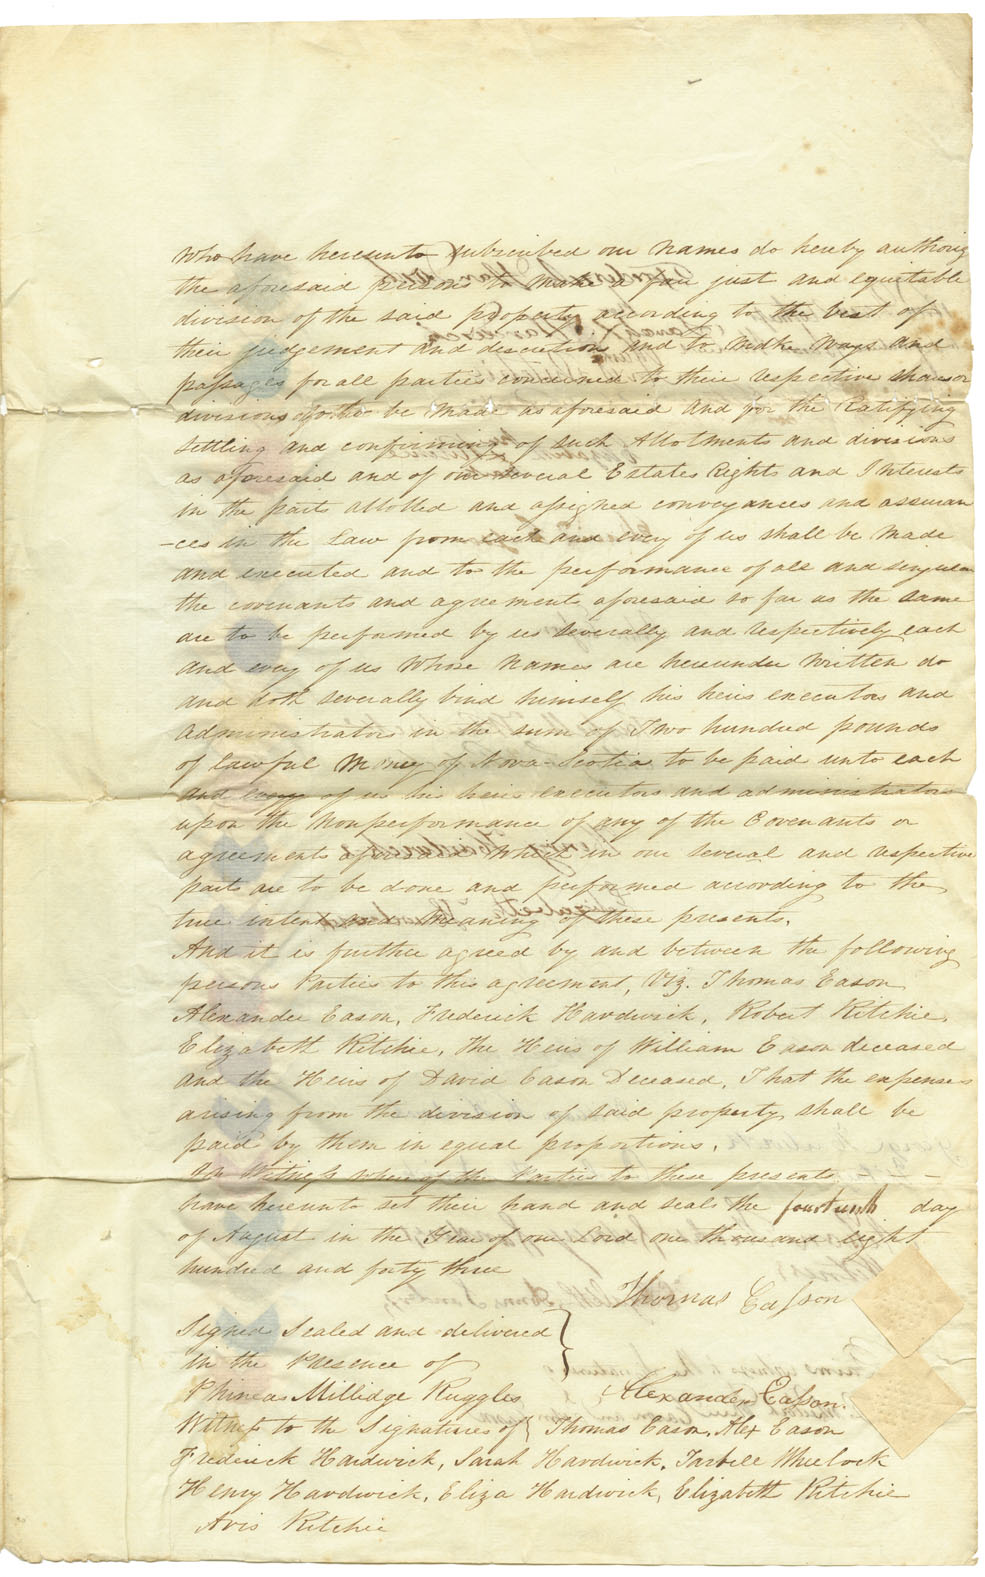 who have hereunto subscribed our names do hereby authoriz
the aforesaid persons to make a fair just and equitable
division of the said property according to the best of
their judgement and discretion and to make ways and
passages for all parties concerned to their respective shares or
divisions so to be made as aforesaid and for the Ratifying
settling and confirming of such Allotments and divisions
as aforesaid and of our several Estates Rights and Interests
in the parts allotted and assigned conveyances and assuran
-ces in the Law from each and every of us shall be made
and executed and to the performance of all and singular
the covenants and agreements aforesaid so far as the same
are to be performed by us severally and respectively each
and every of us whose names are hereunder written do
and doth severally bind himself his heirs executors and
Administrators in the sum of Two hundred pounds
of lawful Money of Nova-Scotia to be paid unto each
and every of us his heirs executors and administrators
upon the Nonperformance of any of the Covenants or
agreements which in our several and respective
parts are to be done and performed according to the
true intent and meaning of these presents.
And it is further agreed by and between the following
persons Parties to this agreement, Viz. Thomas Eason
Alexander Eason, Frederick Hardwick, Robert Ritchie,
Elizabeth Ritchie, the Heirs of William Eason deceased
and the Heirs of David Eason Deceased, That the expenses
arising from the division of said property shall be
paid by them in equal proportions.
In Witness whereof the Parties to these presents
have hereunto set their hand and seals the fourteenth day
of August in the Year of our Lord one thousand eight
hundred and forty three
Thomas Easson
Signed Sealed and delivered
in the Presence of
Phineas Millidge Ruggles
Alexander Easson.
Witness to the Signatures of Thomas Eason, Alex Eason
Frederick Hardwick, Sarah Hardwick, Tarbell Wheelock
Henry Hardwick, Eliza Hardwick, Elizabeth Ritchie
Avis Ritchie